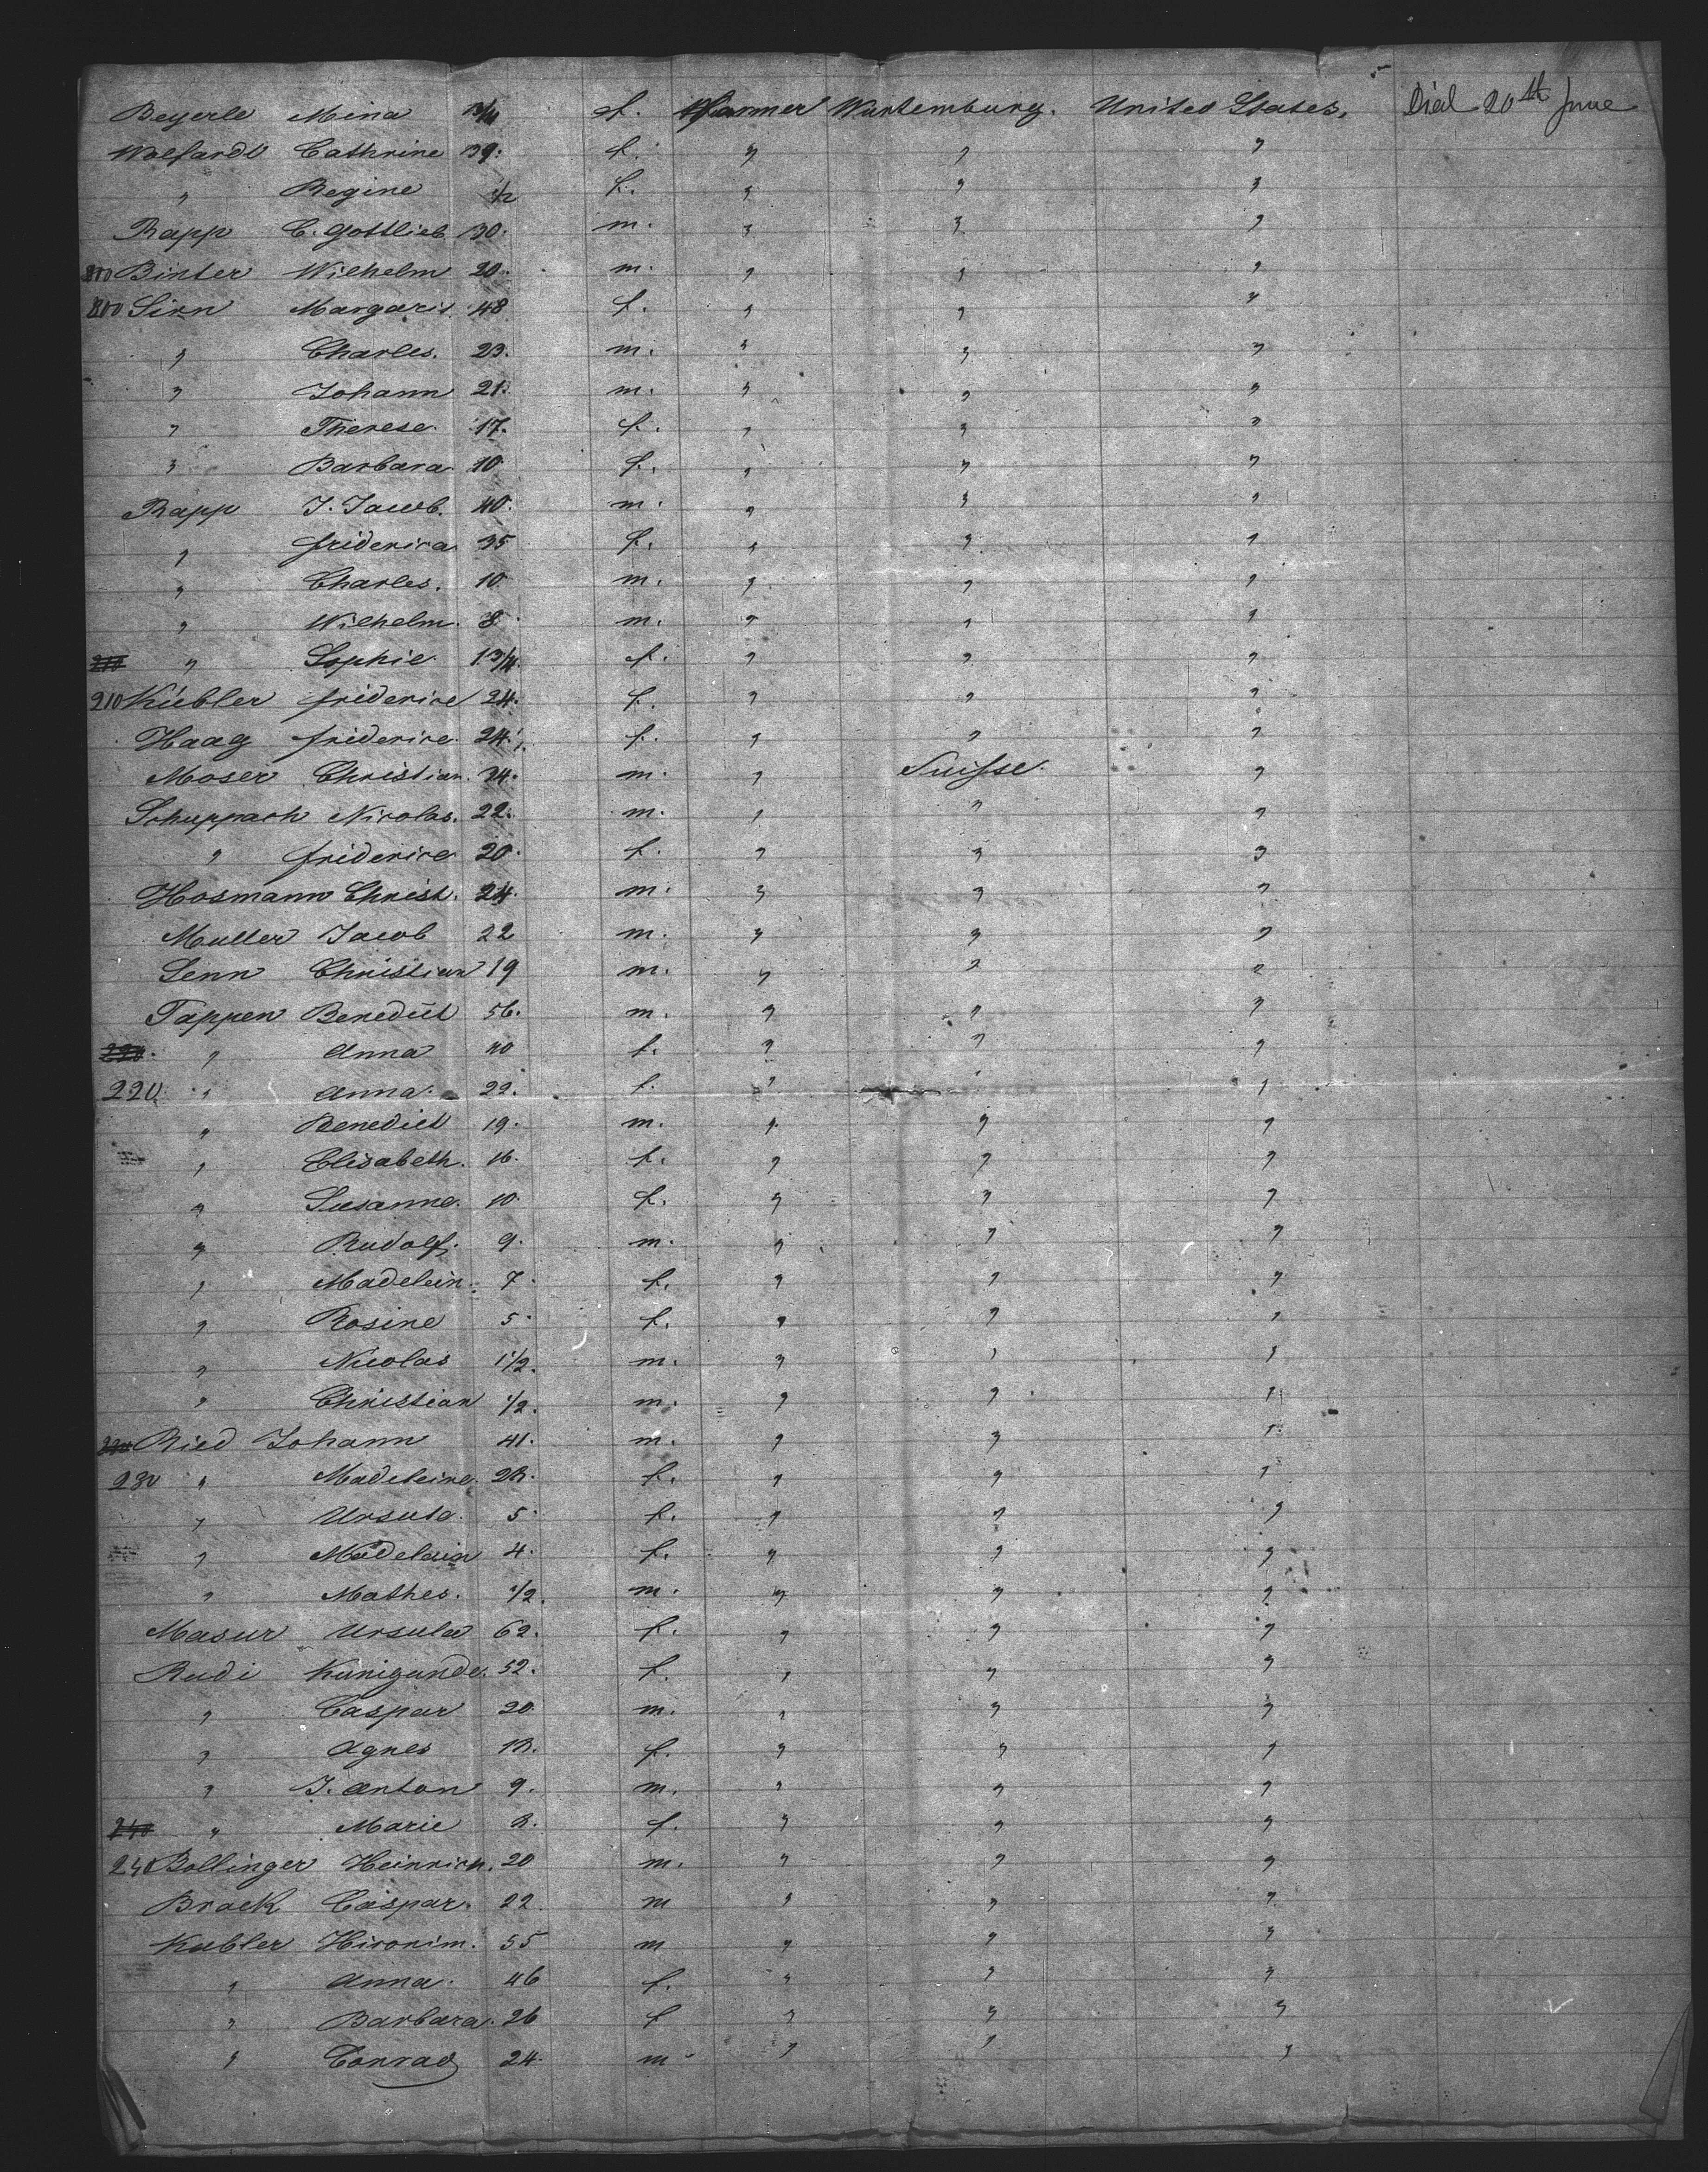 Beyerle Mina 3/4 f. Farmer Wurtemburg. United States, Died 20th June
Wolfardt Cathrine 39. f. " " "
" Regine 1/2 f. " " "
Rapp C. Gottlieb 30. m. " " "
Binter Wilhelm 20. m. " " "
200 Sirn Margaris. 48 f. " " "
" Charles. 23. m. " " "
" Johann 21. m. " " "
" Therese. 17. f. " " "
" Barbara 10 f. " " "
Rapp J. Jacob. 40. m. " " "
" friderica 35 f. " " "
" Charles. 10 m. " " "
" Wilhelm. 8 m. " " "
210 " Sophie 1 3/4. f. " " "
210 Kübler friderice 24. f. " " "
Haag friderice. 24. f. " " "
Moser Christian. 34. m. " Suisse. "
Schuppach Nicolas. 22. m. " " "
" friderice 20. f. " " "
Hosmann Christ. 24. m. " " "
Muller Jacob 22 m. " " "
Senn Christian 19 m. " " "
Tappen Benedict 56. m. " " "
220. " Anna 40 f. " " "
220 " Anna. 22. f. " " "
" Benedict 19. m. " " "
" Elisabeth. 16. f. " " "
" Susanne. 10. f. " " "
" Rudolf. 9. m. " " "
" Madelein. 7. f. " " "
" Rosine 5. f. " " "
" Nicolas 1 1/2. m. " " "
" Christian 1/2. m. " " "
230 Ried Johann 41. m. " " "
230 " Madeleine. 28. f. " " "
" Ursula. 5. f. " " "
" Madelain 4. f. " " "
" Mathes. 1/2. m. " " "
Masur Ursula 62. f. " " "
Rudi Kunigunde. 52. f. " " "
" Caspar 20. m. " " "
" Agnes 18. f. " " "
" J. Anton 9. m. " " "
240 " Marie 8. f. " " "
240 Bollinger Heinrich. 20 m. " " "
Brack Caspar. 22. m " " "
Kubler Hironim. 55 m " " "
" Anna. 46 f. " " "
" Barbara. 26 f " " "
" Conrad 24. m " " "